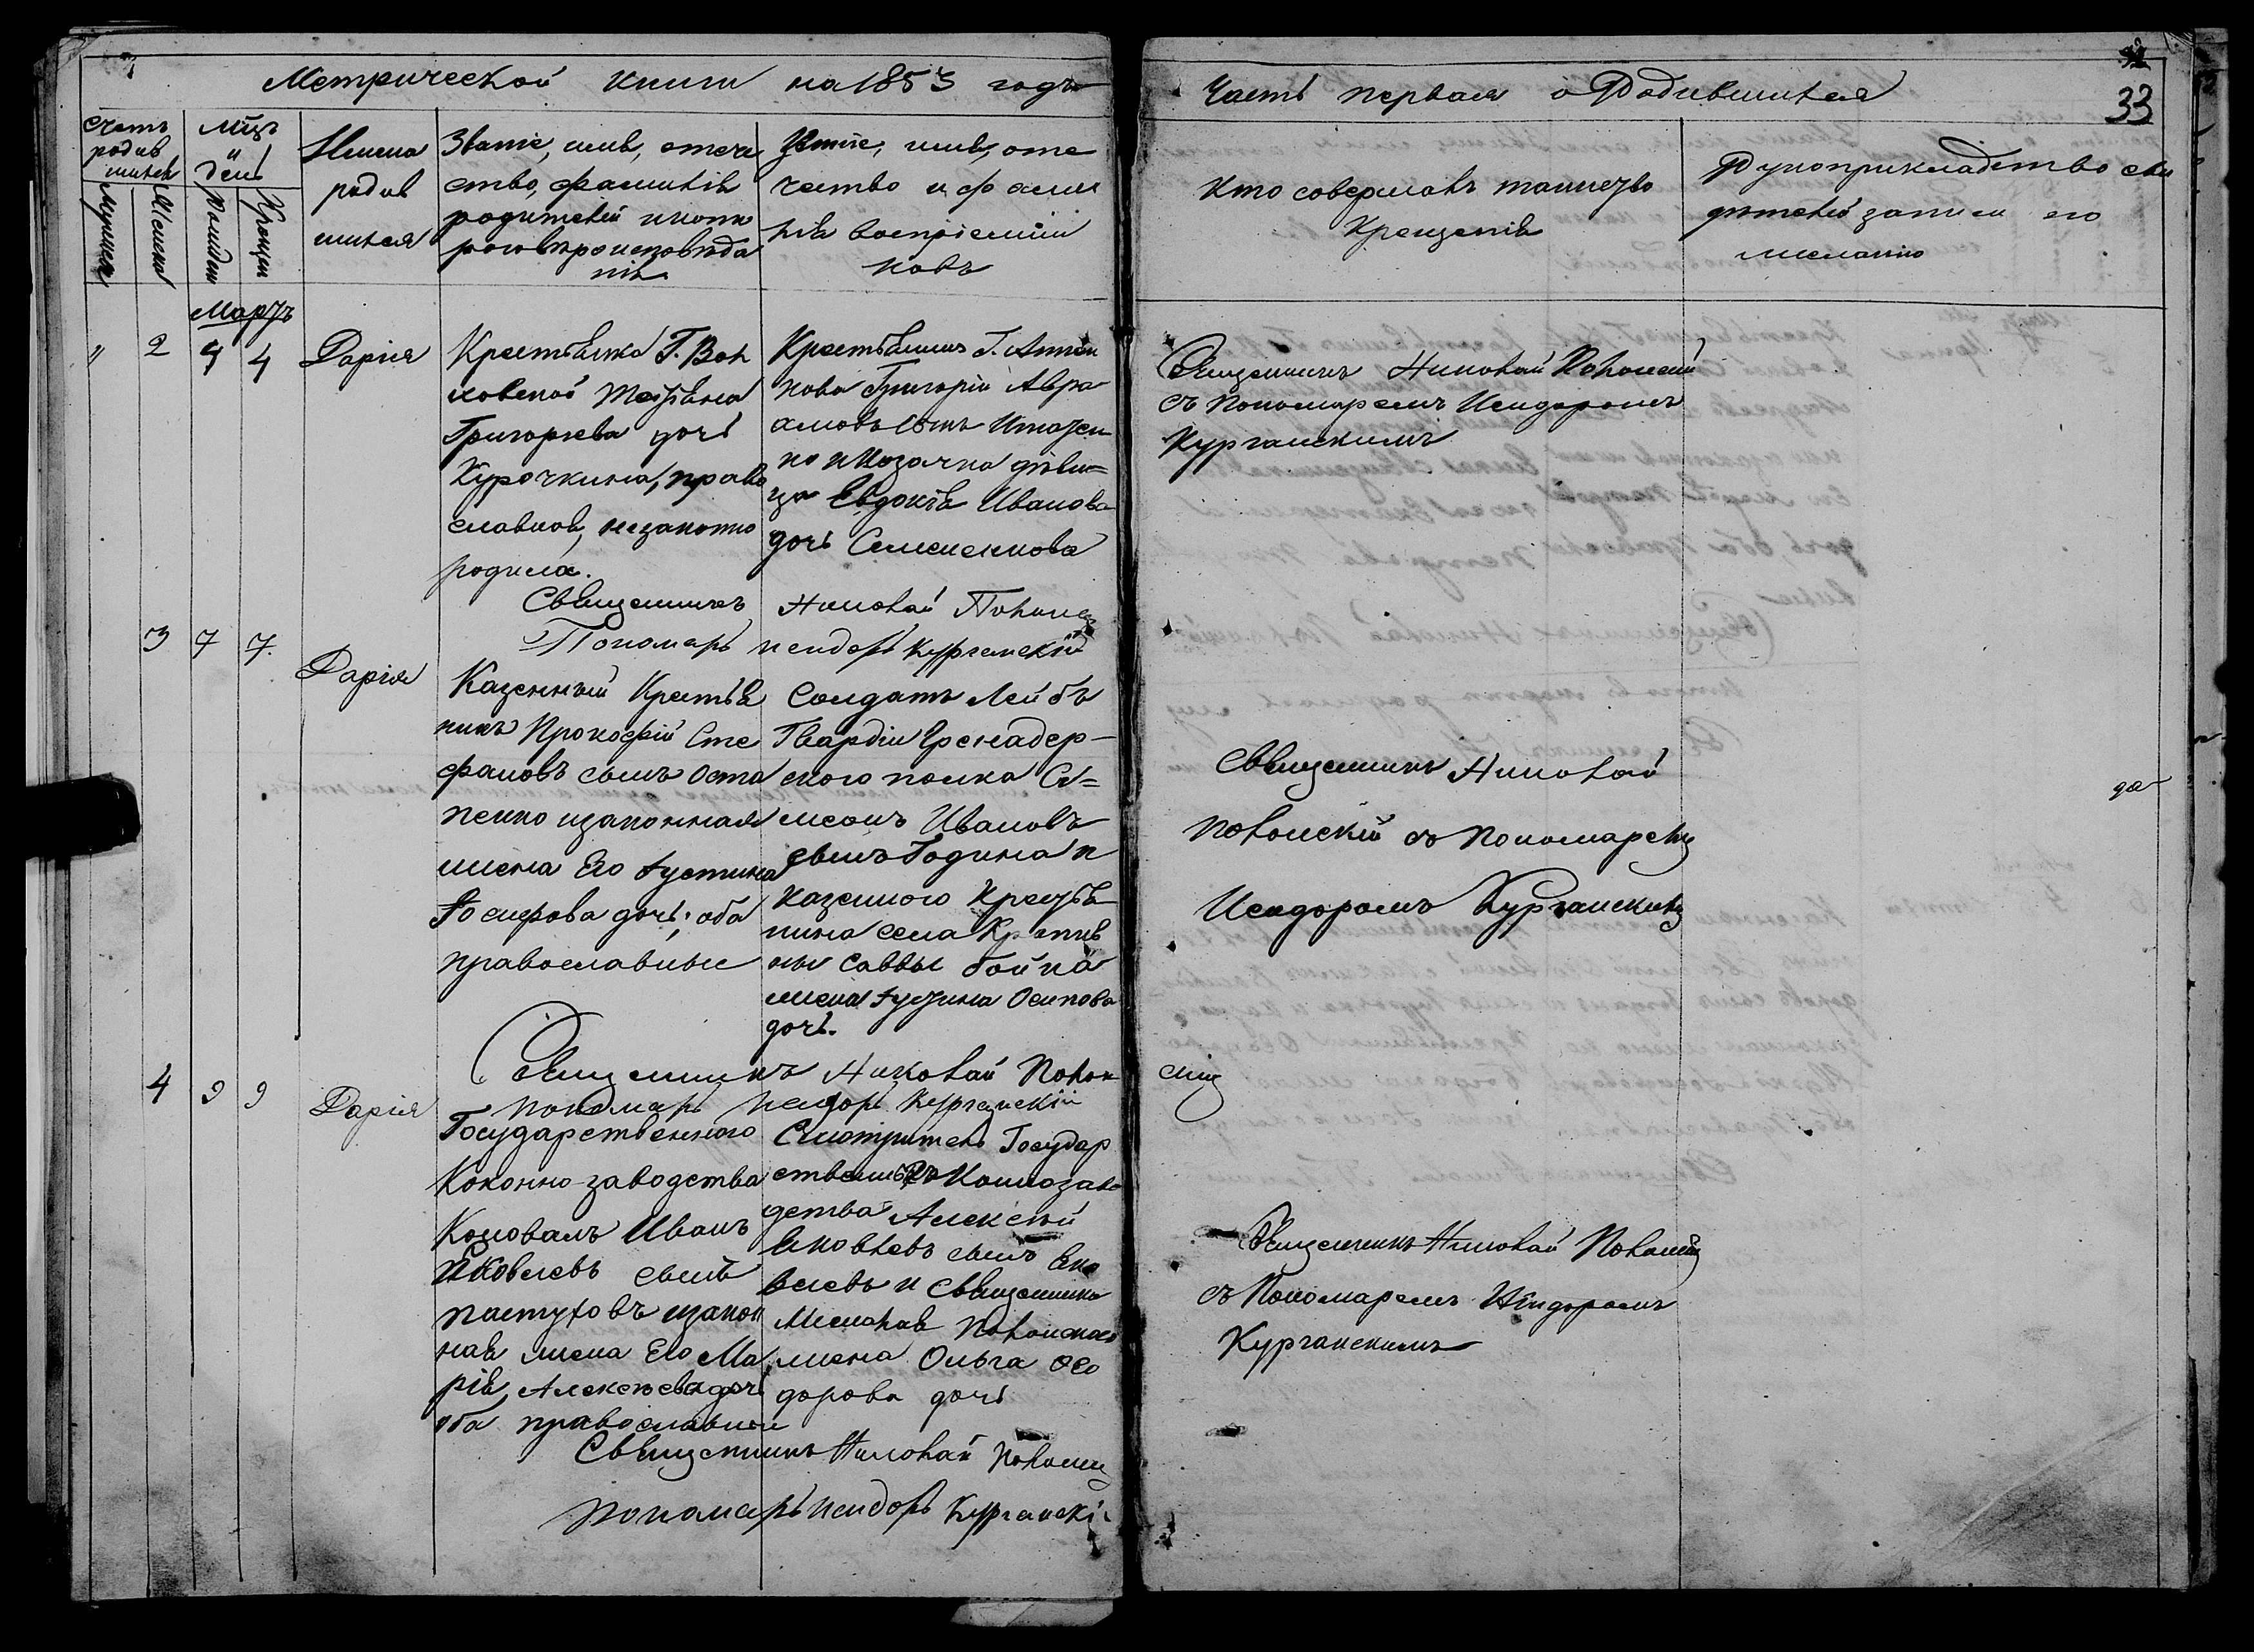 Метрической книги на 1853 годъ
Часть первая о Родившихся
33
Счетъ родив шихся
Мцъ и день
Имена родив шихся
Званіе, имя, отече
ство, фамилія
родителей и кото
рого вѣроисповѣда
нія
Званіе, имя, оте
чество и фами
лія воспріемни
ковъ
Кто совершалъ таинство
Крещенія
Рукоприкладство сви
дѣтелей записи по
желанію
Мартъ
" 2 4 4 Дарія
Крестьянка Г.
Григорьева дочь
Курочкина, право
славная, незаконно
родила.
Крестьянинъ Г.
Григорій Авра
амовъ сынъ
и козачка дѣви=
ца Евдокія Иванова
дочь Семененкова
Священникъ Николай
съ Пономаремъ Исидоромъ
Курганскимъ
Священникъ Николай
Пономарь Исидоръ Курганскій
3 7 7. Дарія
Казенный Крестья
нинъ Прокофій Сте
фановъ сынъ Оста
пенко и законная
жена Его Іустина
Іосифова дочь; оба
православные
Солдатъ Лейбъ
Гвардіи Гренадер-
ского полка Си=
меонъ Ивановъ
сынъ Година и
казенного Крестья
нина села
Саввы Бойка
жена Іустина Осипова
дочь.
Священникъ Николай
съ Пономаремъ
Исидоромъ Курганскимъ
Священникъ Николай
Пономарь Исидоръ Курганскій
4 9 9 Дарія
Государственного
Коконно-заводства
Коновалъ Иванъ
Яковлевъ сынъ
Пастуховъ и закон
ная жена Его Ма
рія Алексѣева дочь
оба православные
Смотритель Государ
ственного Коннозаво
дства Алексѣй
Яковлевъ сынъ Яко
влевъ и Священника
жена Ольга Ѳео
дорова дочь
Священникъ Николай
съ Пономаремъ Исидоромъ
Курганскимъ
Священникъ Николай
Пономарь Исидоръ Курганскі